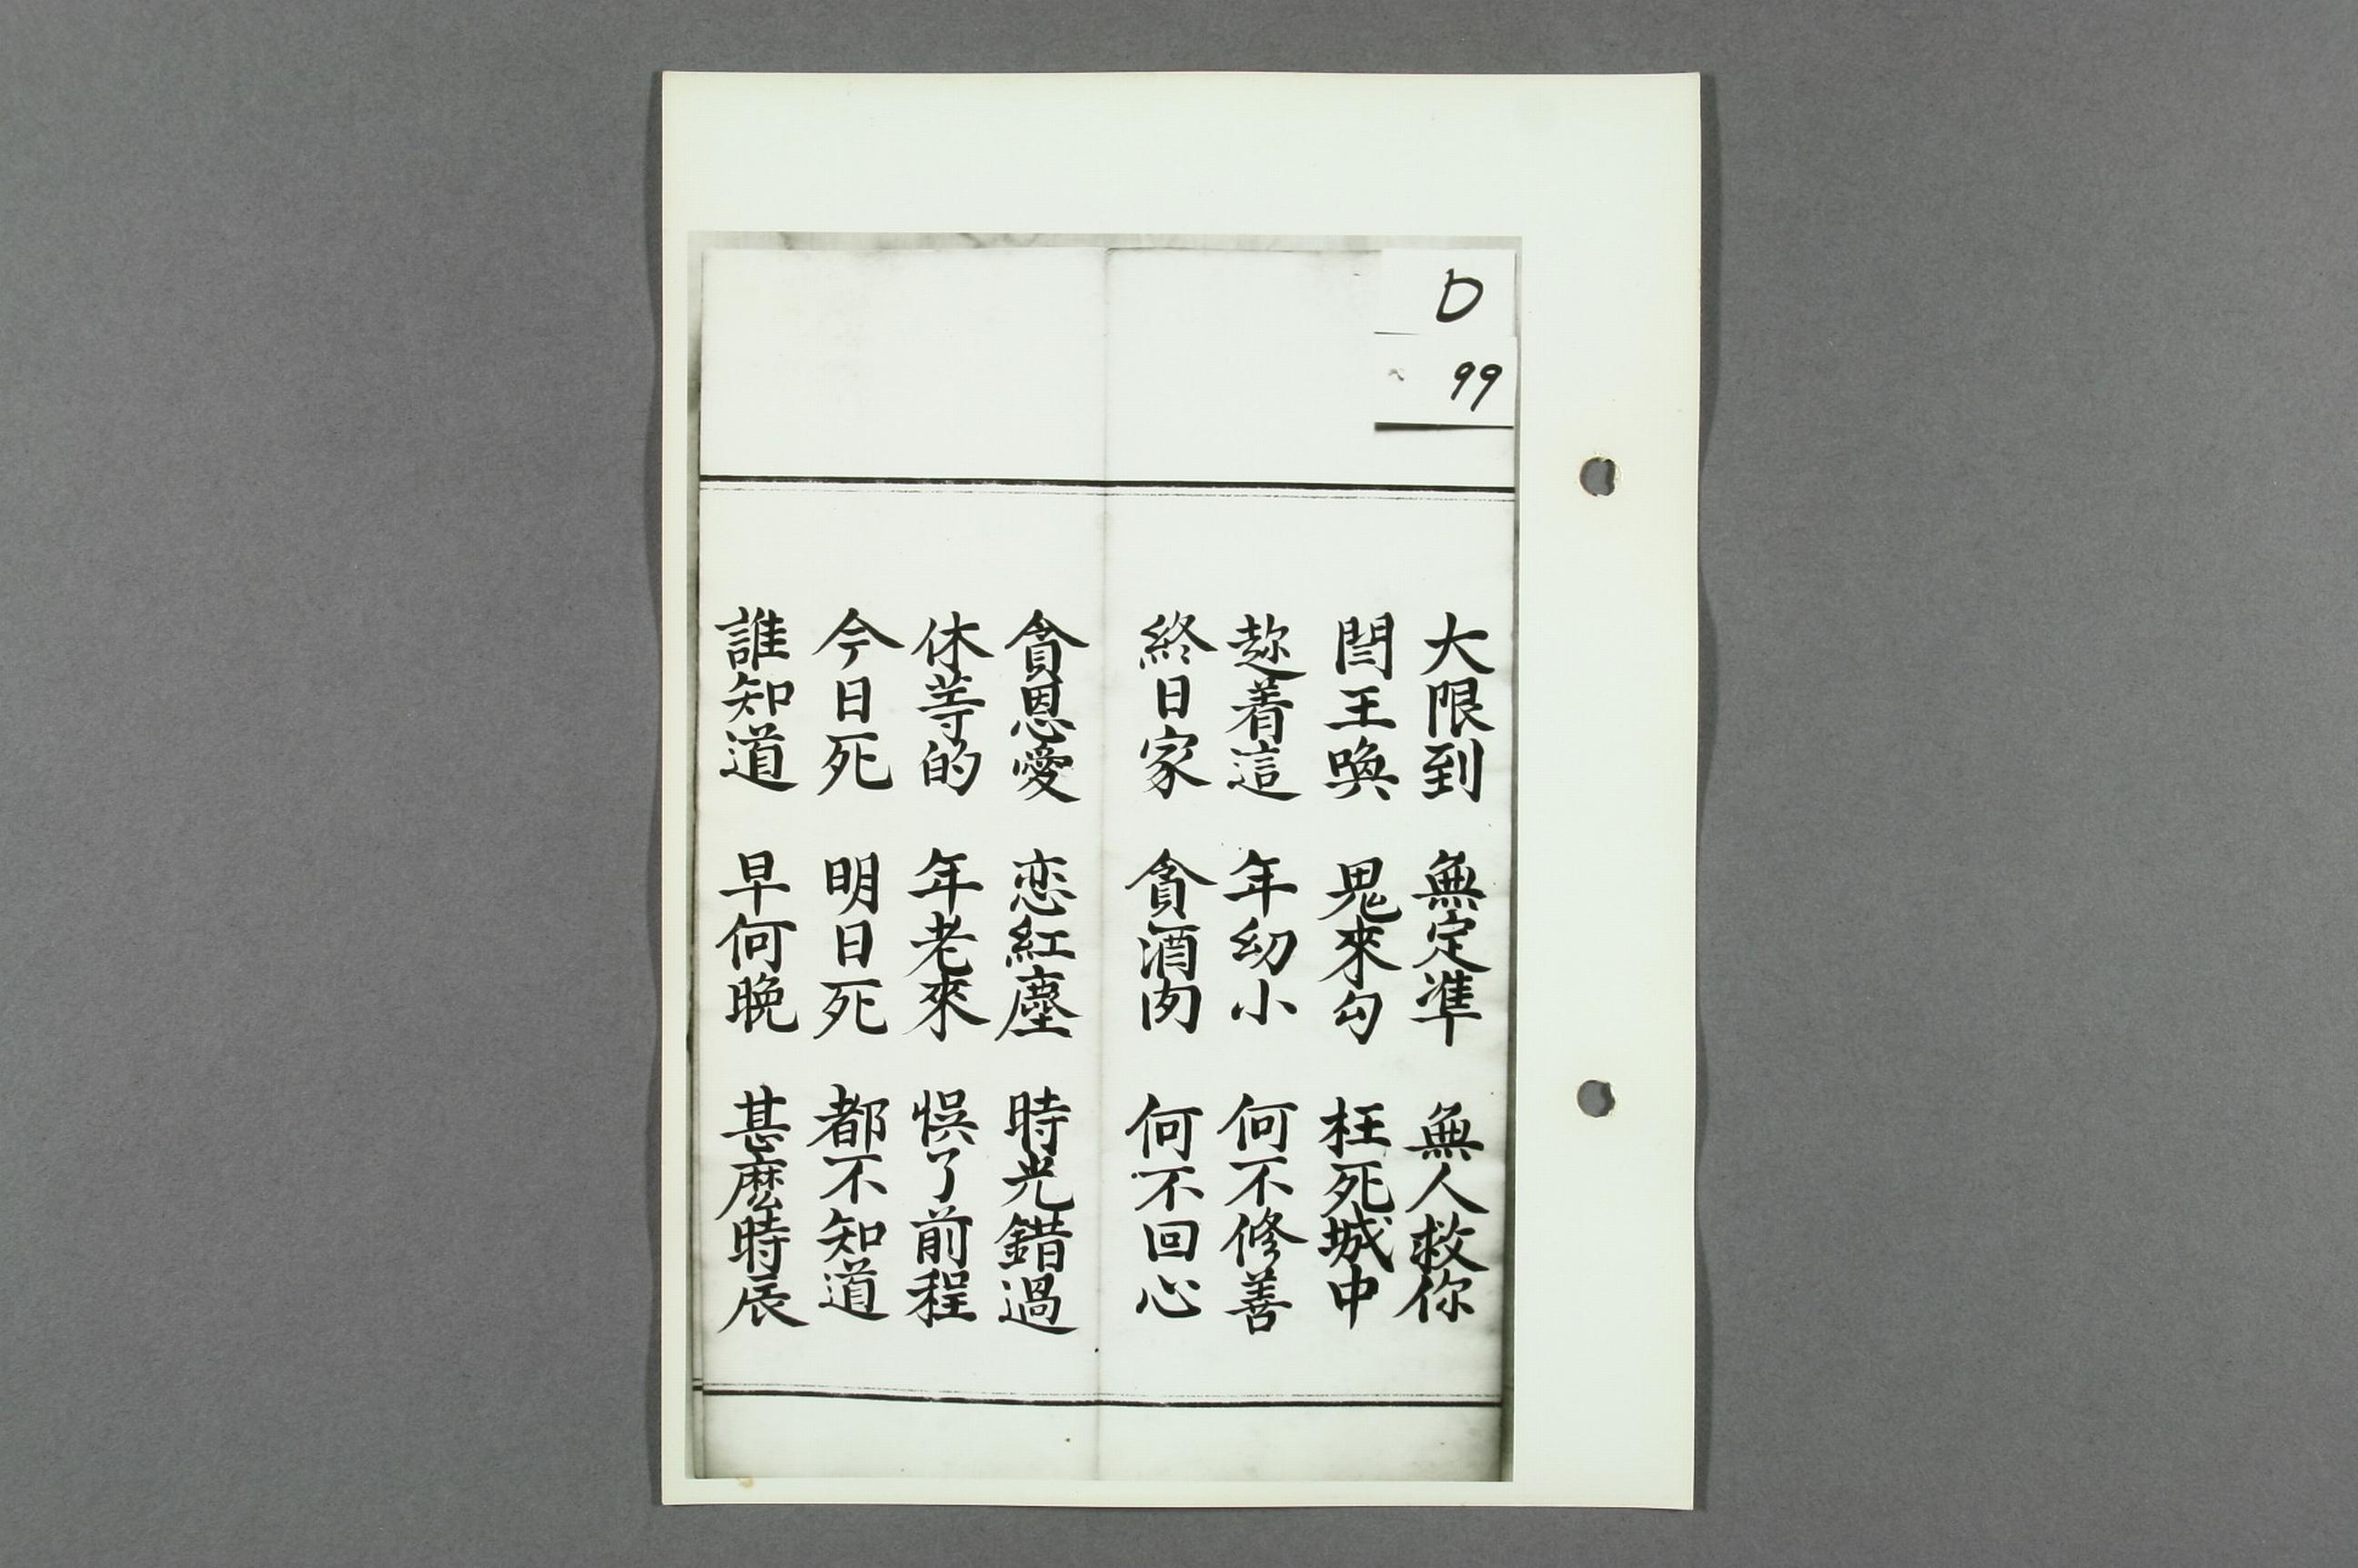 D
99
大限到 無定準 無人救你
閆王喚 鬼來勾 枉死城中
趂着這 年幼小 何不修善
終日家 貪酒肉 何不回心
貪恩愛 恋紅塵 時光錯過
休等的 年老來 悞了前程
今日死 明日死 都不知道
誰知道 早何晚 甚麽時辰